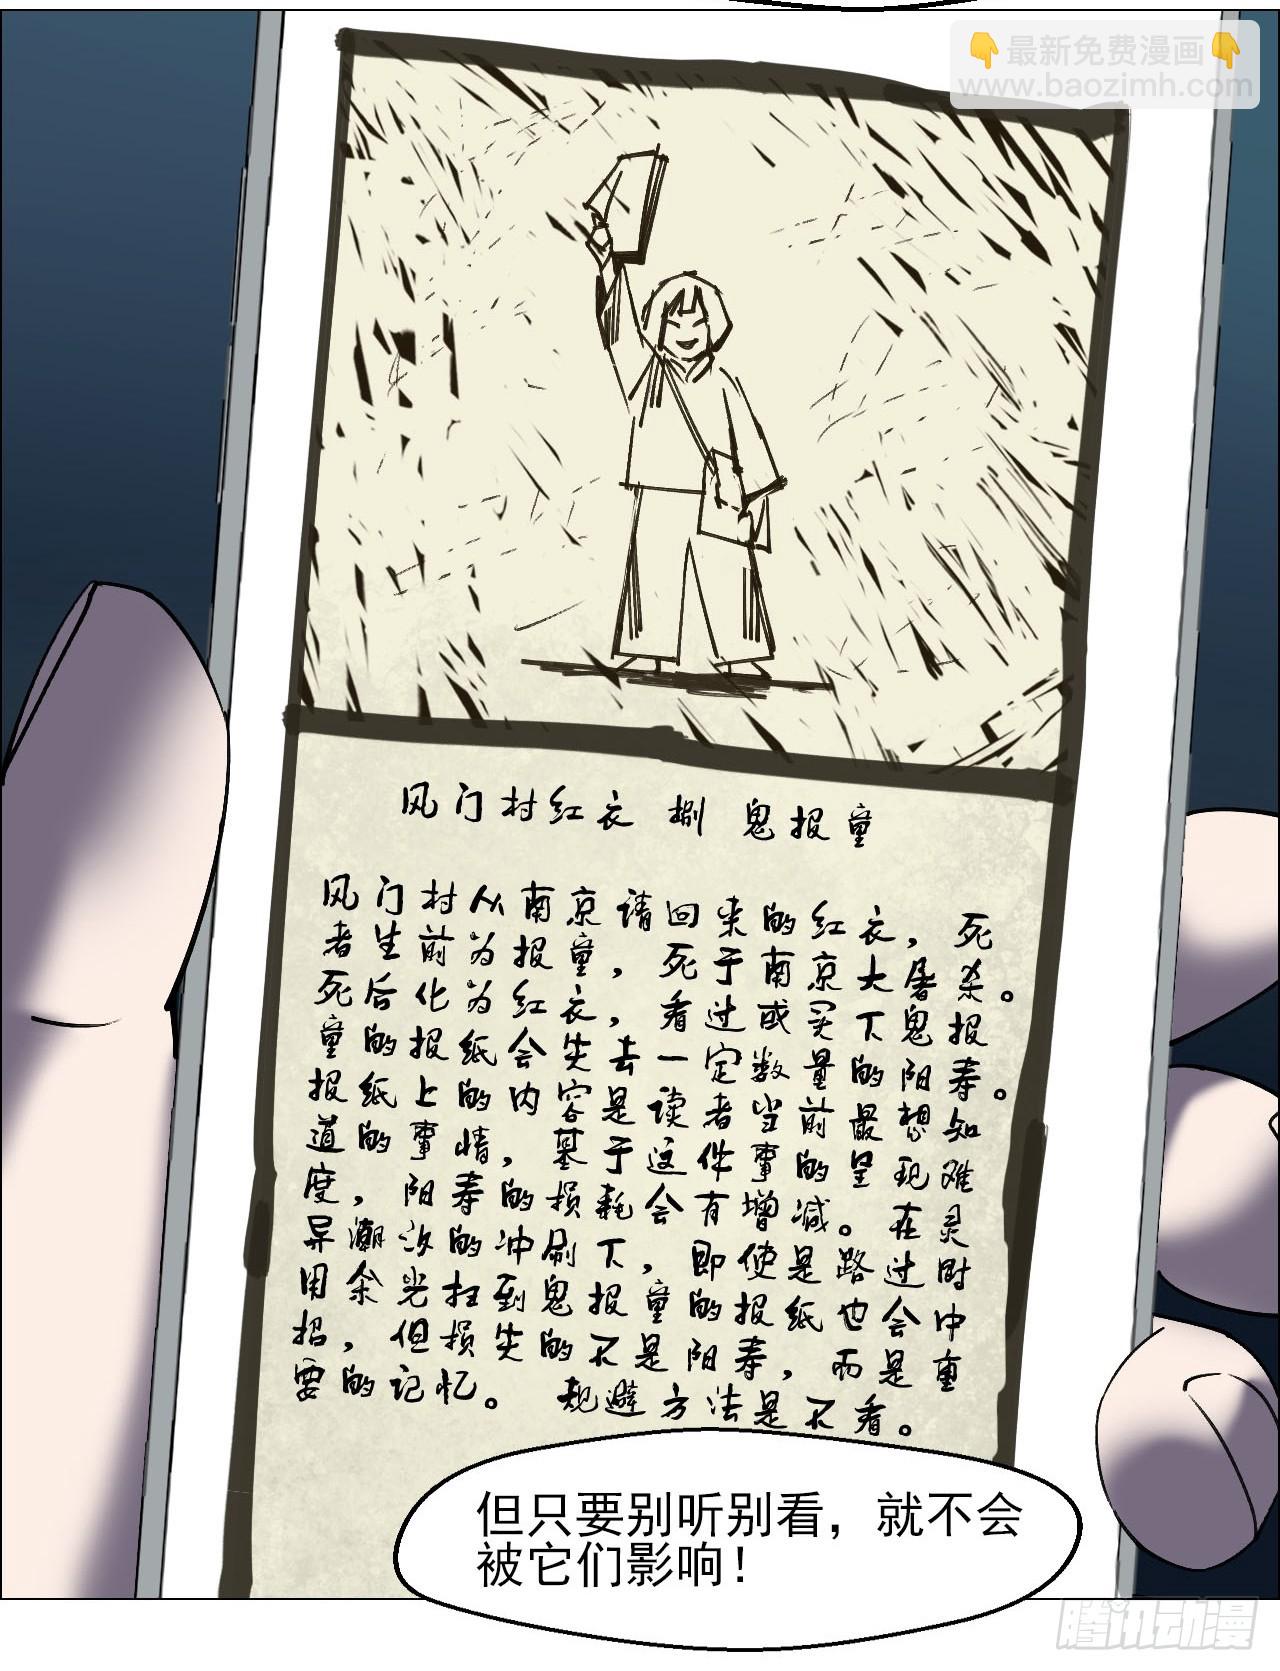 👇最新免费漫画👇
www.baozimh.com
风门村红衣 捌 鬼报童
风门村从南京请回来的红衣，死
者生前为报童，死于南京大屠杀。
死后化为红衣，看过或买下鬼报
童的报纸会失去一定数量的阳寿。
报纸上的内容是读者当前最想知
道的事情，基于这件事的呈现难
度，阳寿的损耗会有增减。在灵
异潮汐的冲刷下，即使是路过时
用余光扫到鬼报童的报纸也会中
招，但损失的不是阳寿，而是重
要的记忆。 规避方法是不看。
但只要别听别看，就不会
被它们影响！
腾讯动漫